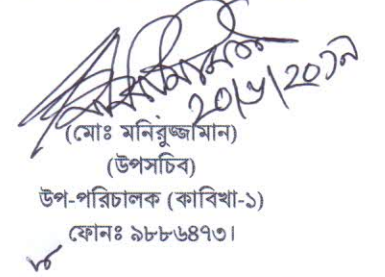 (মোঃ মনিরুজ্জামান)
(উপসচিব)
উপ-পরিচালক (কাবিখা-১)
ফোনঃ ৯৮৮৬৪৭৩।